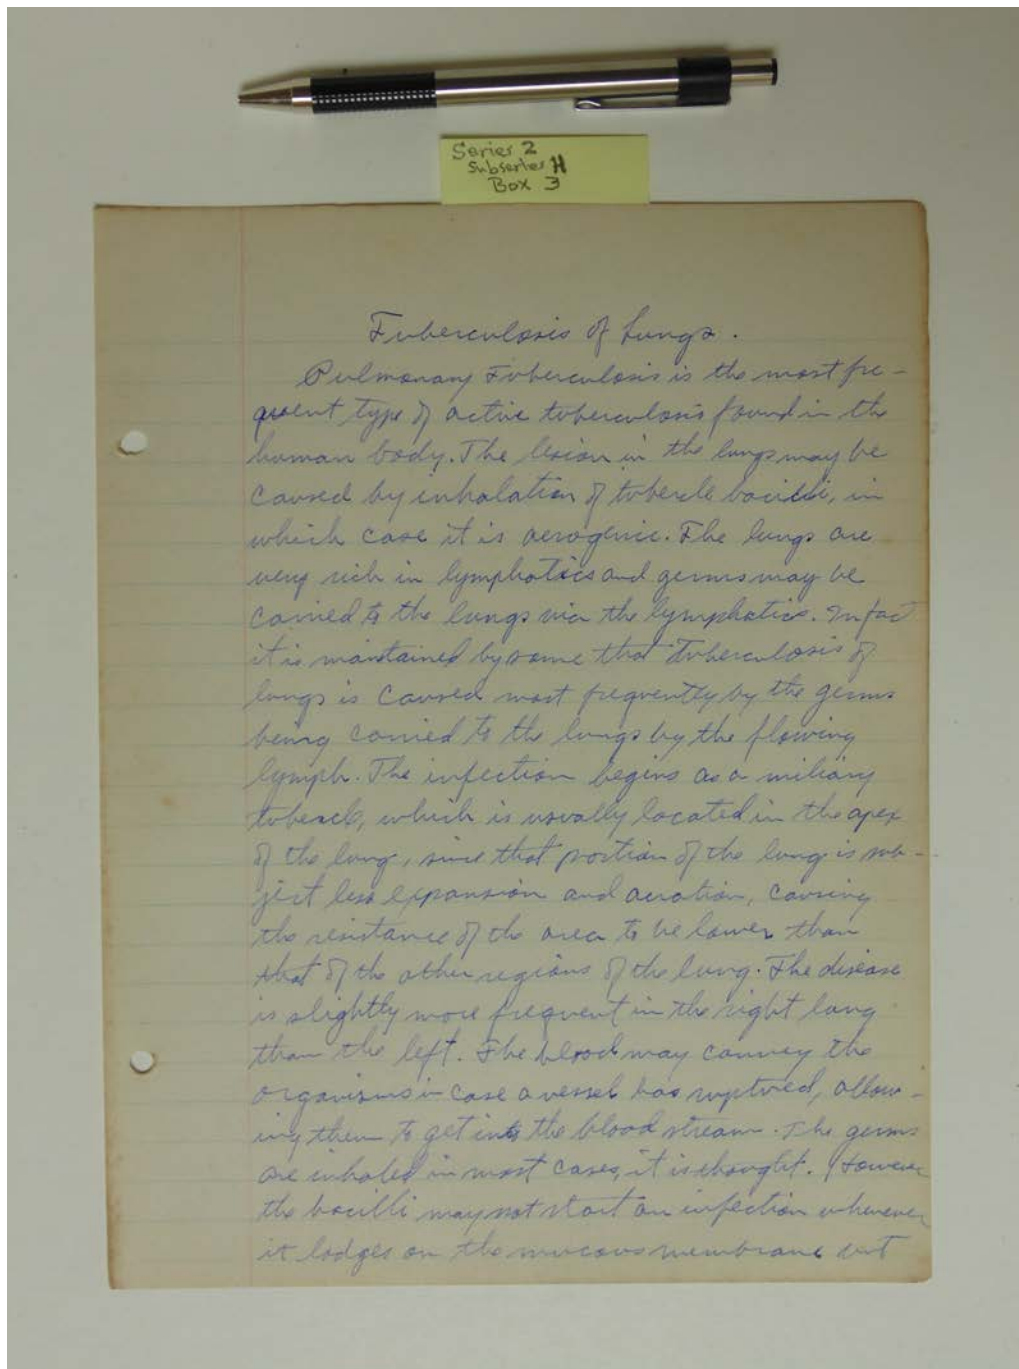 Series 2
Subseries H
Box 3
Tuberculosis of Lungs.
Pulmonary Tuberculosis is the most fre-
quent type of active tuberculosis found in the
human body. The lesion in the lungs may be
caused by inhalation of tubercle bacilli, in
which case it is aerogenic. The lungs are
very rich in lymphatics and germs may be
carried to the lungs via the lymphatics. In fact
it is maintained by some that Tuberculosis of
lungs is caused most frequently by the germs
being carried to the lungs by the flowing
lymph. The infection begins as a miliary
tubercle, which is usually located in the apex
of the lung, since that portion of the lung is sub-
ject less expansion and aeration, causing
the resistance of the area to be lower than
that of the other regions of the lung. The disease
is slightly more frequent in the right lung
than the left. The blood may convey the
organisms in case a vessel has ruptured, allow-
ing them to get into the blood stream. The germs
are inhaled in most cases, it is thought. However
the bacilli may not start an infection wherever
it lodges on the mucous membrane but